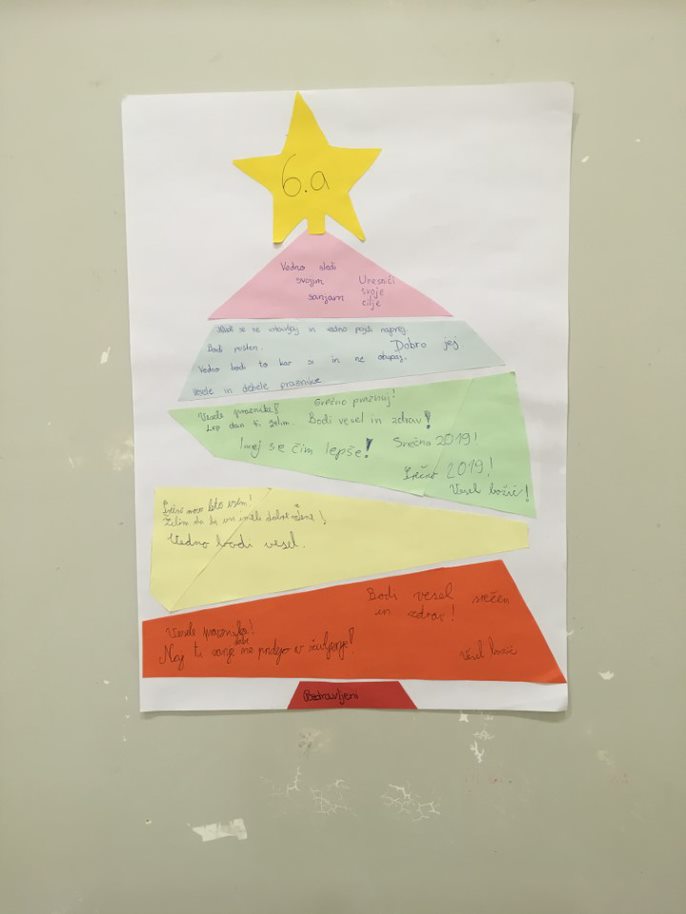 6.a
Vedno sledi
svojim
sanjam
Uresniči
svoje
cilje
se ne ustavljaj in vedno pojdi naprej
Bodi pošten.
Dobro jej
Vedno bodi to kar si in ne obupaj.
Vesele in debele praznike
Vesele praznike!
Srečno praznuj!
Lep dan ti želim.
Bodi vesel in zdrav!
Imej se čim lepše!
Srečno 2019!
Srečno 2019!
Vesel božič!
Srečno novo leto vsem!
Želim da bi vsi imeli dobre ocene!
Vedno bodi vesel.
Bodi vesel srečen
in zdrav!
Vesele praznike!
Naj ti sanje pridejo v življenje!
Vesel božič
Pozdravljeni